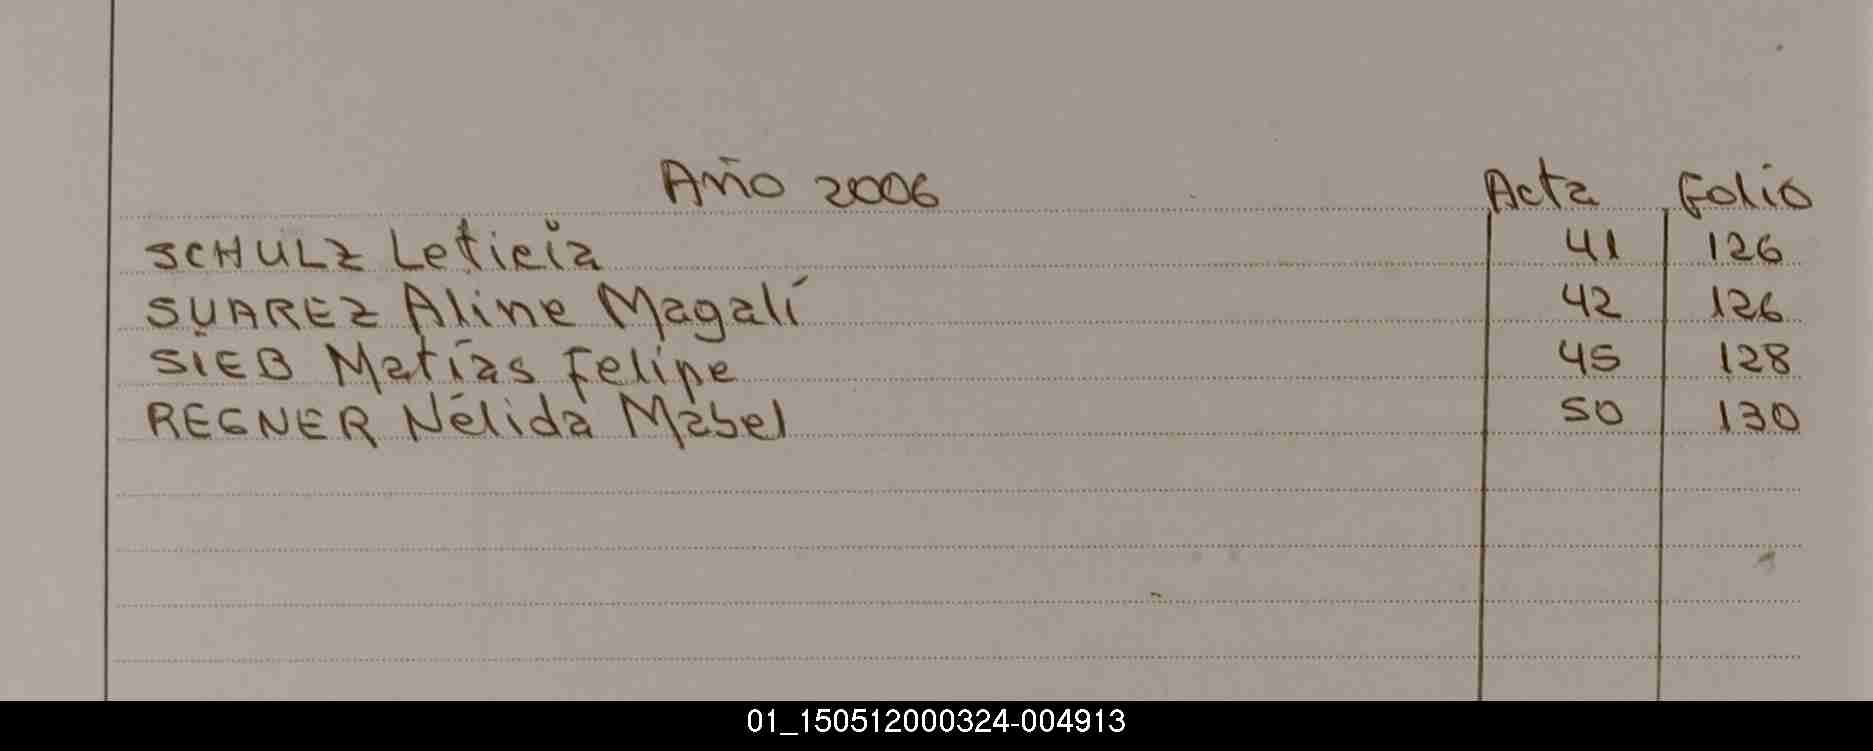 Año 2006 Acta Folio
SCHULZ Leticia 41 126
SUAREZ Aline Magalí 42 126
SIEB Matías Felipe 45 128
REGNER Nélida Mabel 50 130
01_150512000324-004913